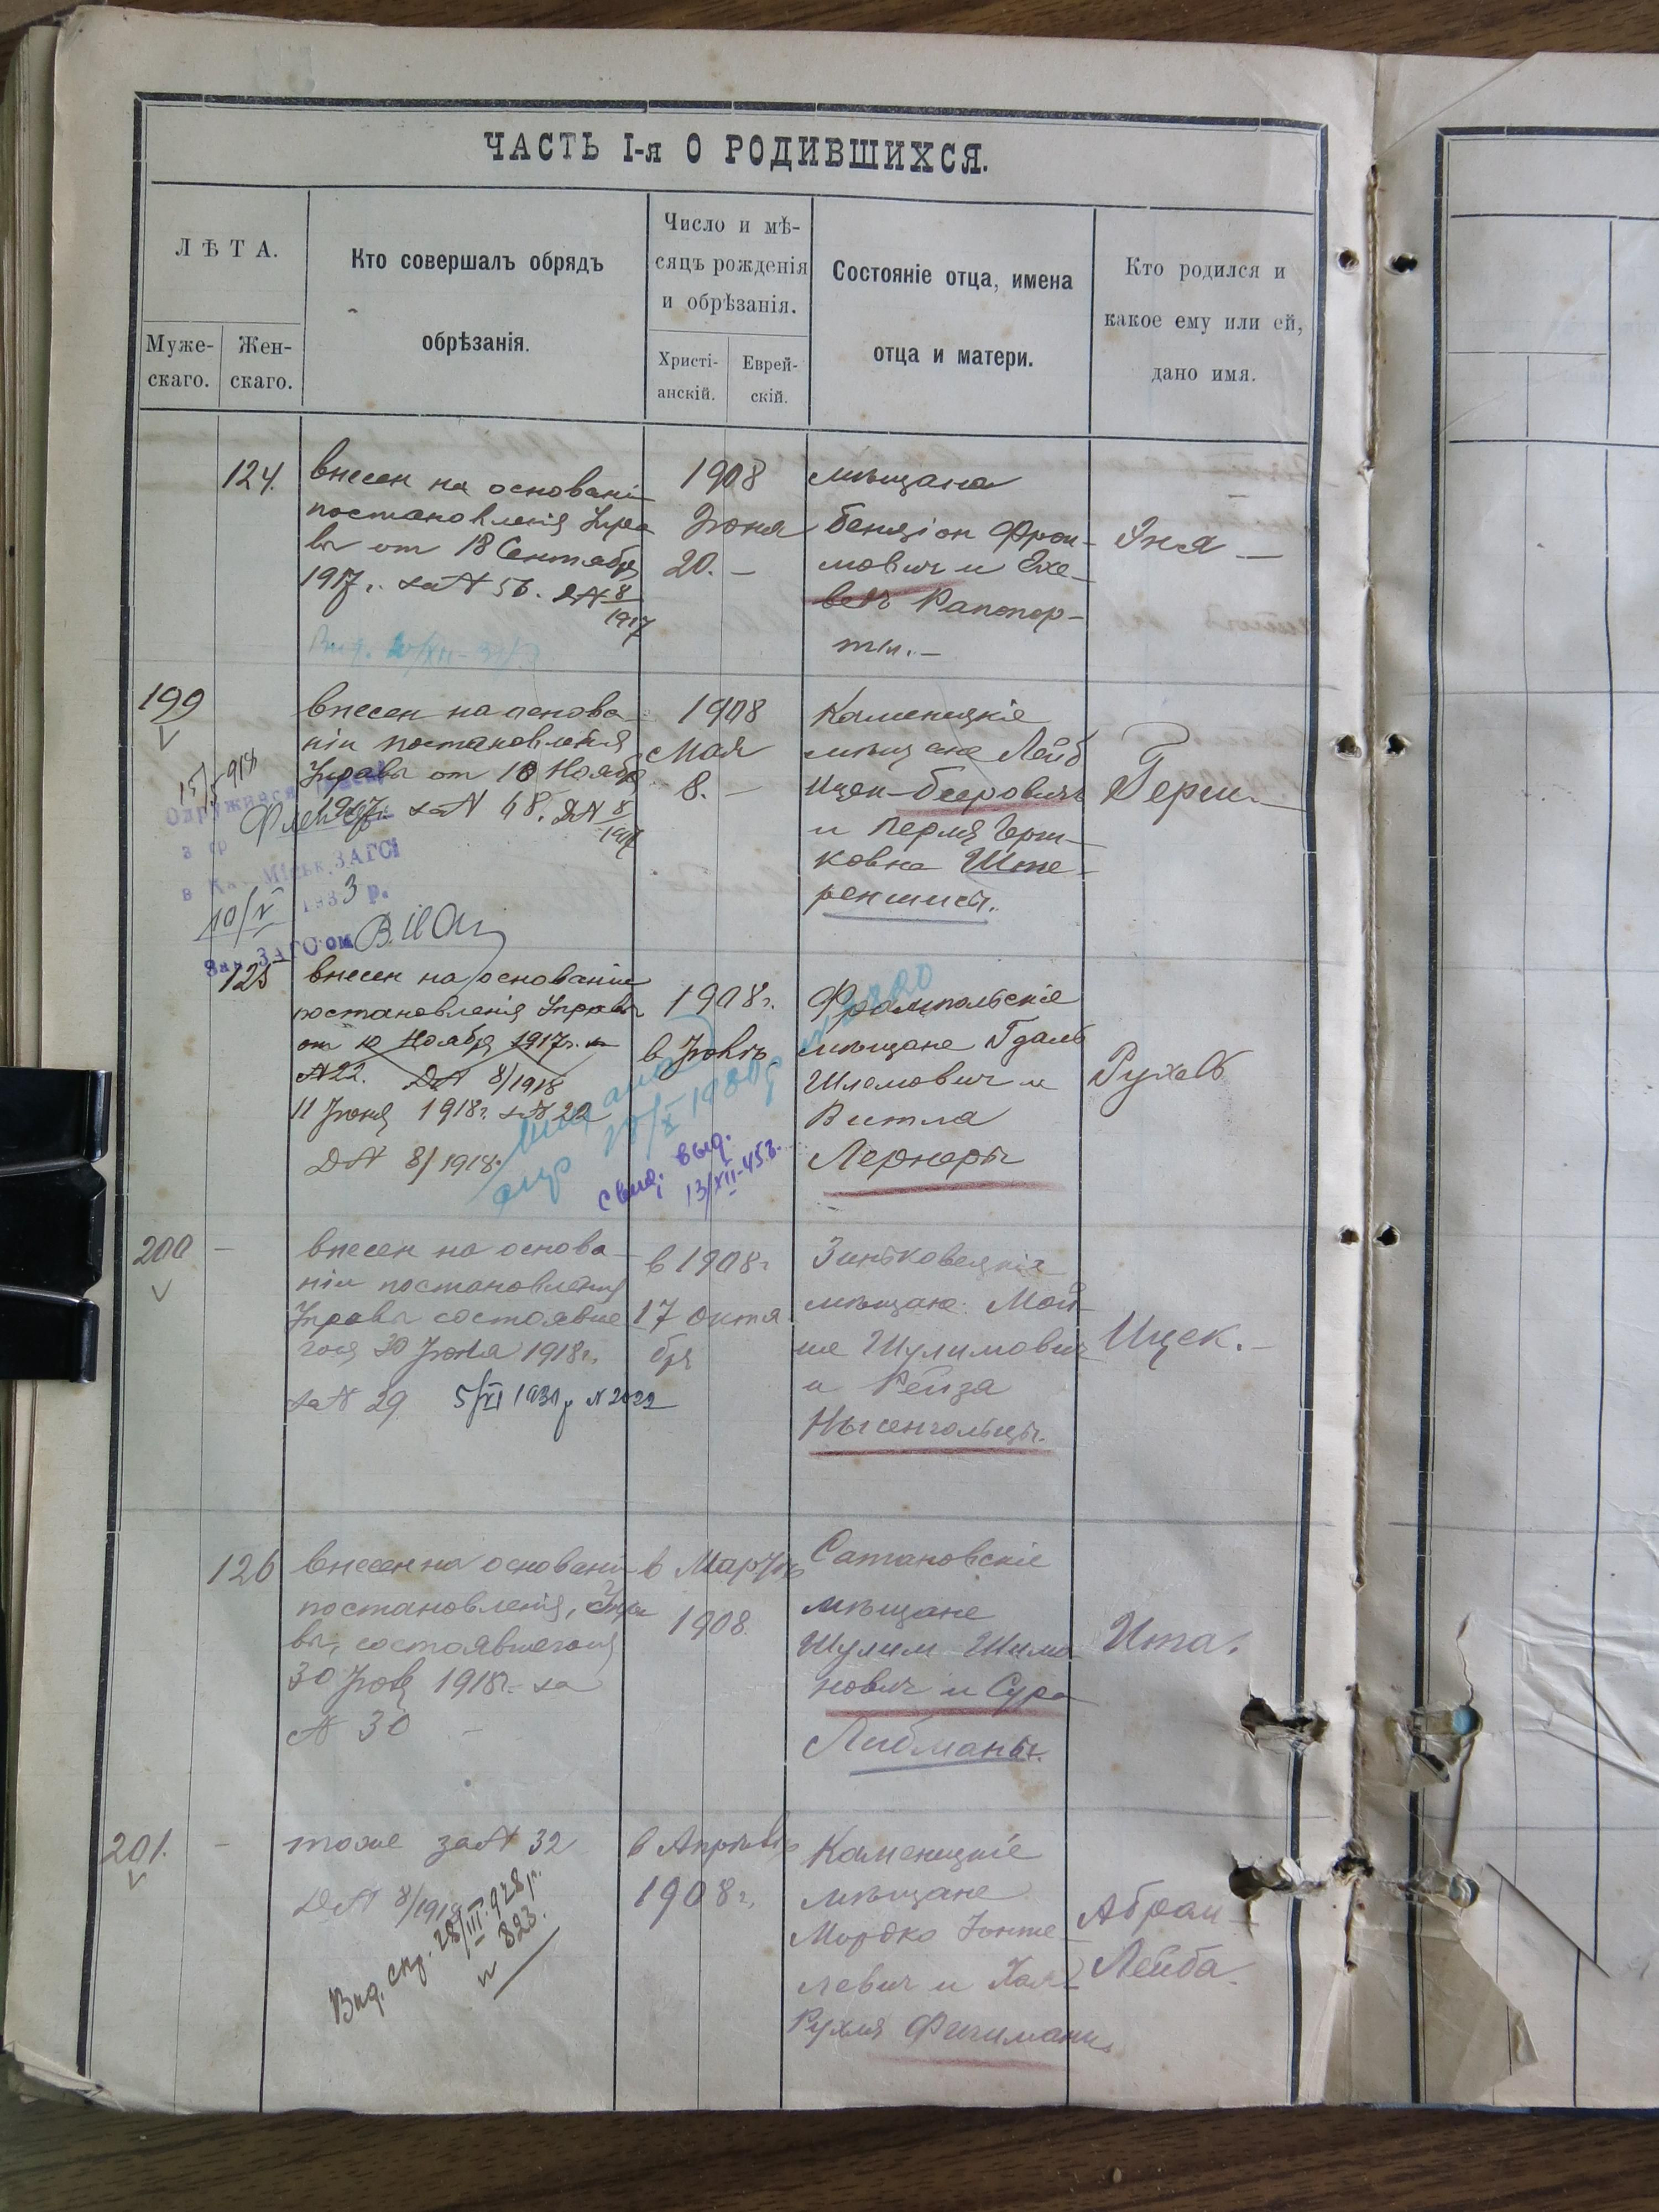 ЧАСТЬ I-я О РОДИВШИХСЯ.
ЛѢТА.
Муже-
скаго.
Жен-
скаго.
Кто совершалъ обрядъ
обрѣзанія.
Число и мѣ-
сяцъ рожденія
и обрѣзанія.
Христі-
анскій.
Еврей-
скій.
Состояніе отца, имена
отца и матери.
Кто родился и
какое ему или ей,
дано имя.
124.
внесен на основаніи
постановленія Упра
вы от 18 Сентября
1917 г. за N 56. Д N 8/1917
1908
Іюня
20. —
мѣщана
Бенціон Фрои-
мович и Ехе-
ведъ Рапопор-
ты. —
Эня —
199
15/ 918
внесен на основа-
ніи постановленія
Управы от 10 Ноября
1917 г. за N 68. Д N 8
1908
Мая
8. —
Каменецкіе
мѣщане Лейб
Ицек-Беерович
и Перля Герш-
ковна Ште-
реншис.
Герш. —
Міськ. ЗАГСІ
10/V 1933 р.
125
внесен на основаніи
постановленія Управы
от 10 Ноября 1917 г.
N 22. Д N 8/1918
11 Іюня 1918 г. за N 22
Д N 8/1918.
свид. выд.
13/XII-45г.
1908 г.
в Іюнѣ
Фрампольскіе
мѣщане Гдаль
Шлемович и
Витла
Лернеры
Рухль
200 —
внесен на основа-
ніи постановленія
Управы состоявше
гося 30 Іюня 1918 г.
за N 29. 5/VI 1931 р N 2022
в 1908 г
17 октя
бря
Зиньковецкіе
мѣщане Мой-
ше Шулимович
и Рейза
Нысенгольцы.
Ицек. —
126
внесен на основани
постановленія, Упра
вы, состоявшегося
30 Іюня 1918 г. за
N 30 —
в Мартѣ
1908.
Сатановскіе
мѣщане
Шулим Шимо
нович и Сура
Либманы.
Ита.
201. —
тоже за N 32
Д N 8/1918
Вид. свід. 28/III 928 р.
N 823.
в Апрѣлѣ
1908 г.
Каменецкіе
мѣщане
Мордко Іонте-
левич и Хая
Рухля Фишманы
Абрам-
Лейба.